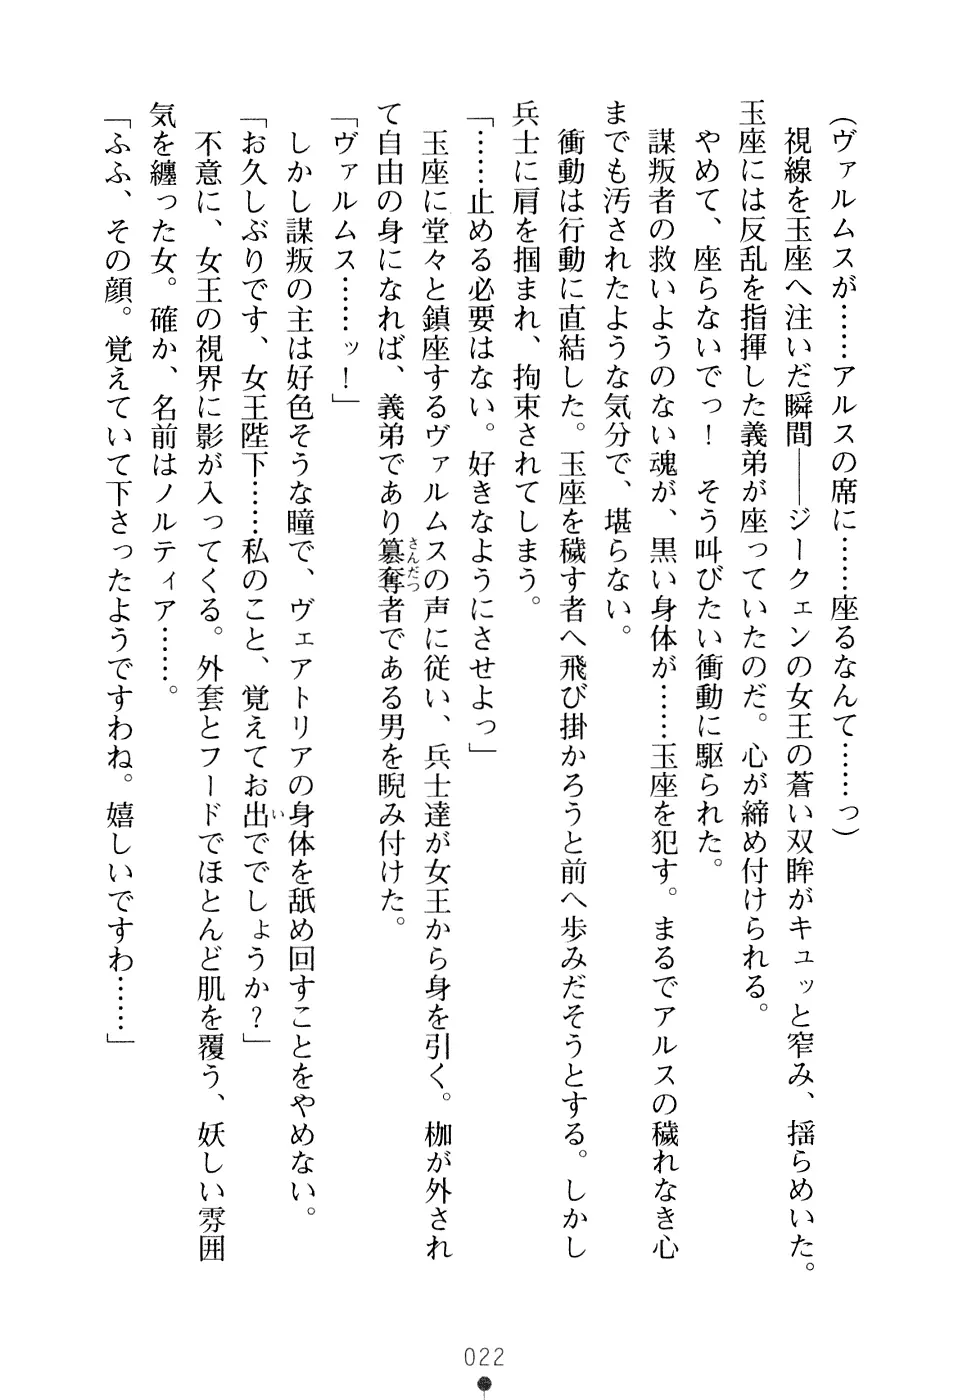 （ヴァルムスが……アルスの席に……座るなんて……っ）
　視線を玉座へ注いだ瞬間――ジークェンの女王の蒼い双眸がキュッと窄み、揺らめいた。
玉座には反乱を指揮した義弟が座っていたのだ。心が締め付けられる。
　やめて、座らないでっ！　そう叫びたい衝動に駆られた。
　謀叛者の救いようのない魂が、黒い身体が……玉座を犯す。まるでアルスの穢れなき心
までも汚されたような気分で、堪らない。
　衝動は行動に直結した。玉座を穢す者へ飛び掛かろうと前へ歩みだそうとする。しかし
兵士に肩を掴まれ、拘束されてしまう。
「……止める必要はない。好きなようにさせよっ」
　玉座に堂々と鎮座するヴァルムスの声に従い、兵士達が女王から身を引く。枷が外され
て自由の身になれば、義弟であり簒奪者である男を睨み付けた。
さんだつ
「ヴァルムス……ッ！」
　しかし謀叛の主は好色そうな瞳で、ヴェアトリアの身体を舐め回すことをやめない。
「お久しぶりです、女王陛下……私のこと、覚えてお出ででしょうか？」
い
　不意に、女王の視界に影が入ってくる。外套とフードでほとんど肌を覆う、妖しい雰囲
気を纏った女。確か、名前はノルティア……。
「ふふ、その顔。覚えていて下さったようですわね。嬉しいですわ……」
022